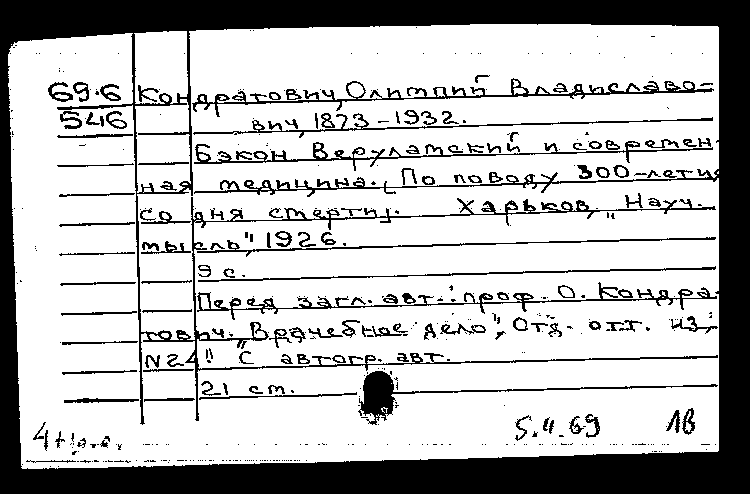 69.6 Кондратович, Олимпий Владиславо-
546 вич, 1873-1932.
Бэкон Веруламский и современ-
ная медицина. [По поводу 300-летия
со дня смерти]. Харьков, „Науч.
мысль", 1926.
9 с.
Перед загл. авт.: проф. О. Кондра-
тович. „Врачебное дело", Отд. отт. из,
N24" С автогр. авт.
21 см.
5.4.69 1В